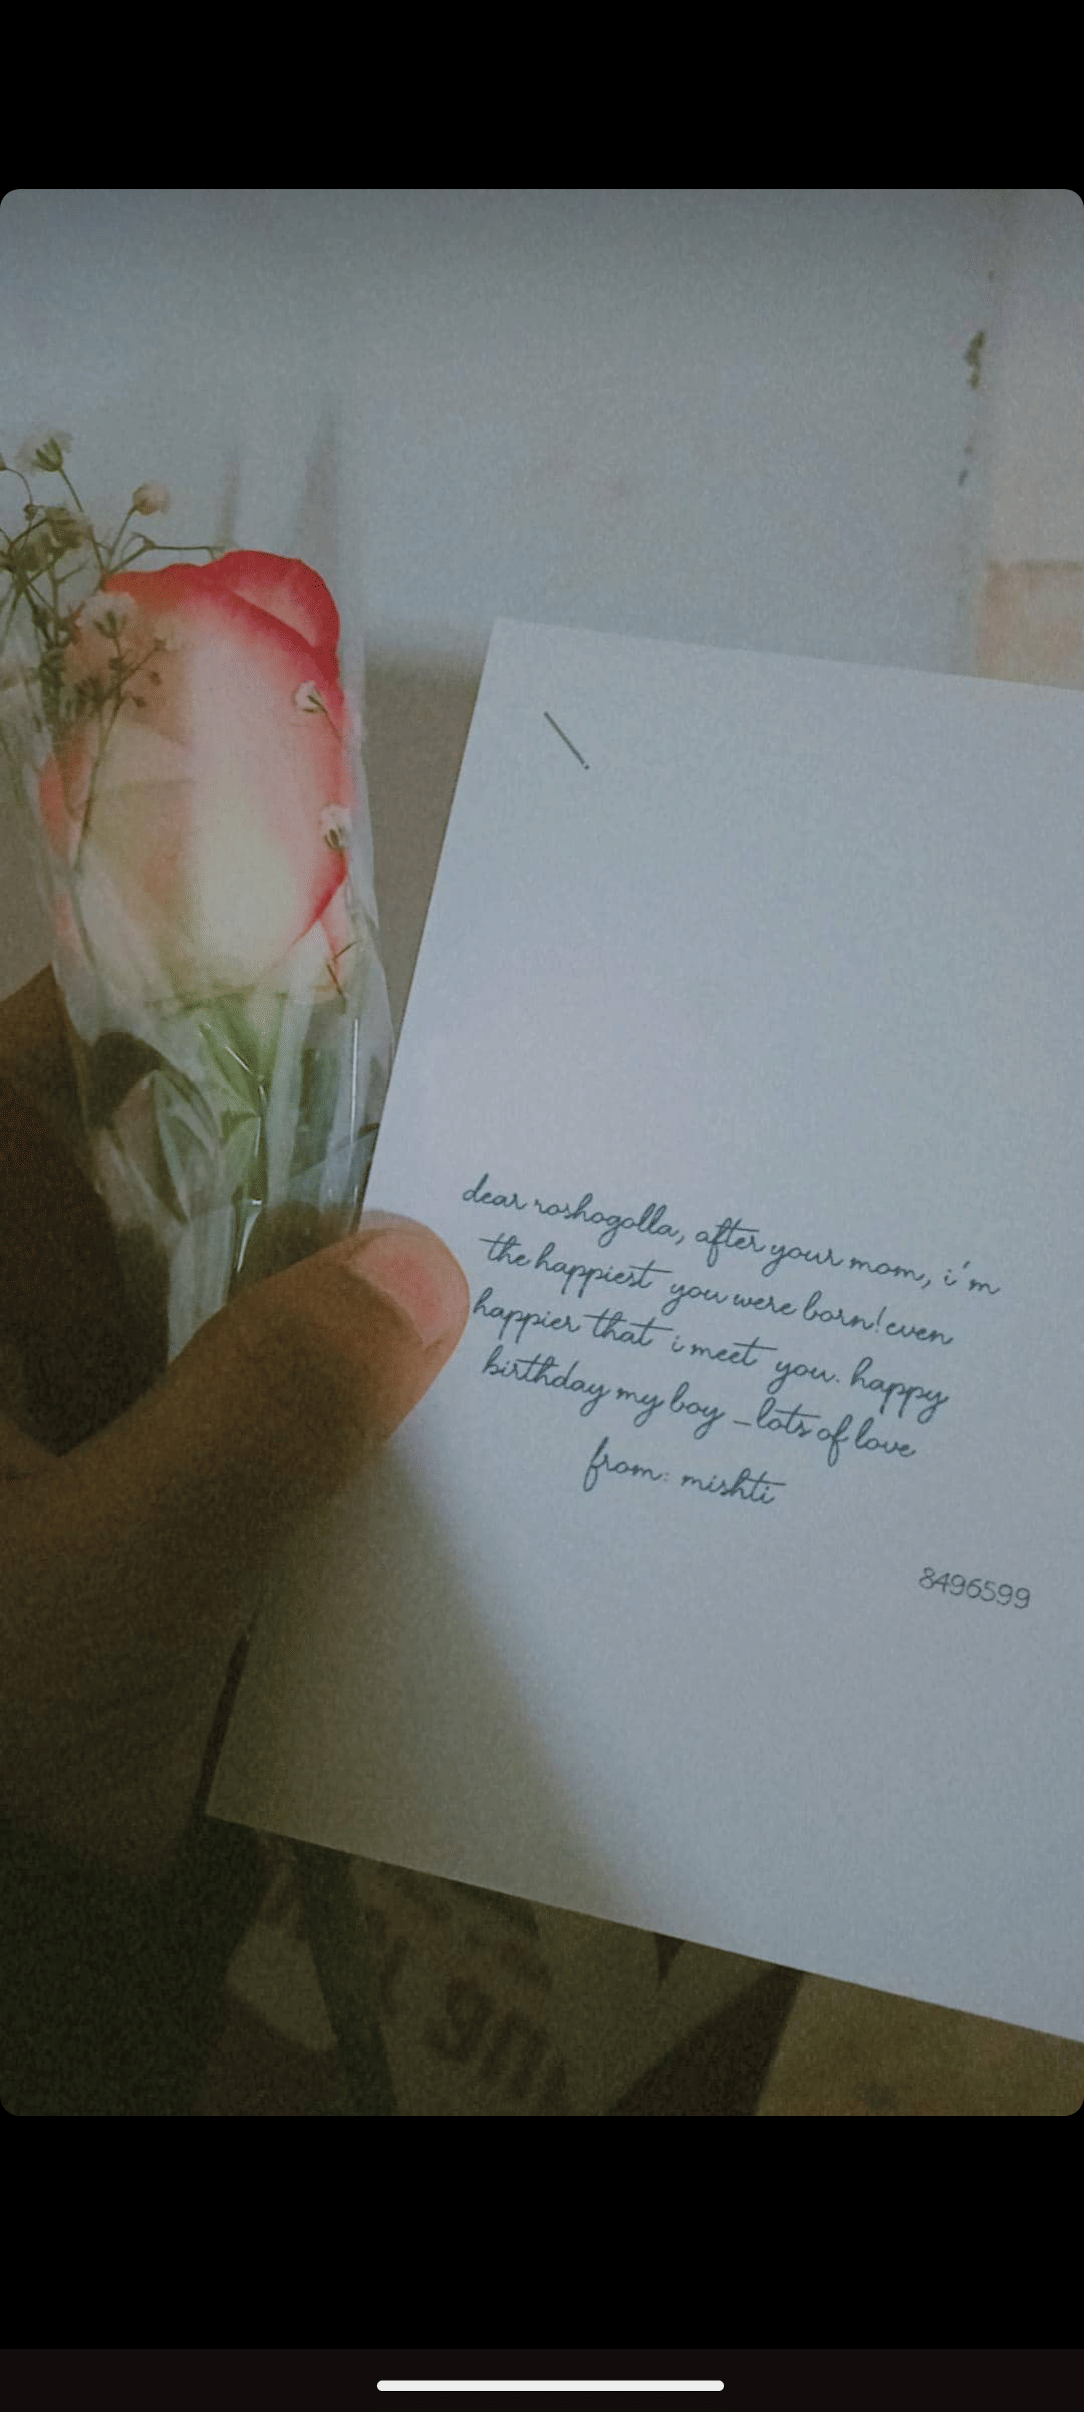 dear roshogolla, after your mom, i'm
the happiest you were born! even
happier that i meet you. happy
birthday my boy _lots of love
from: mishti
8496599